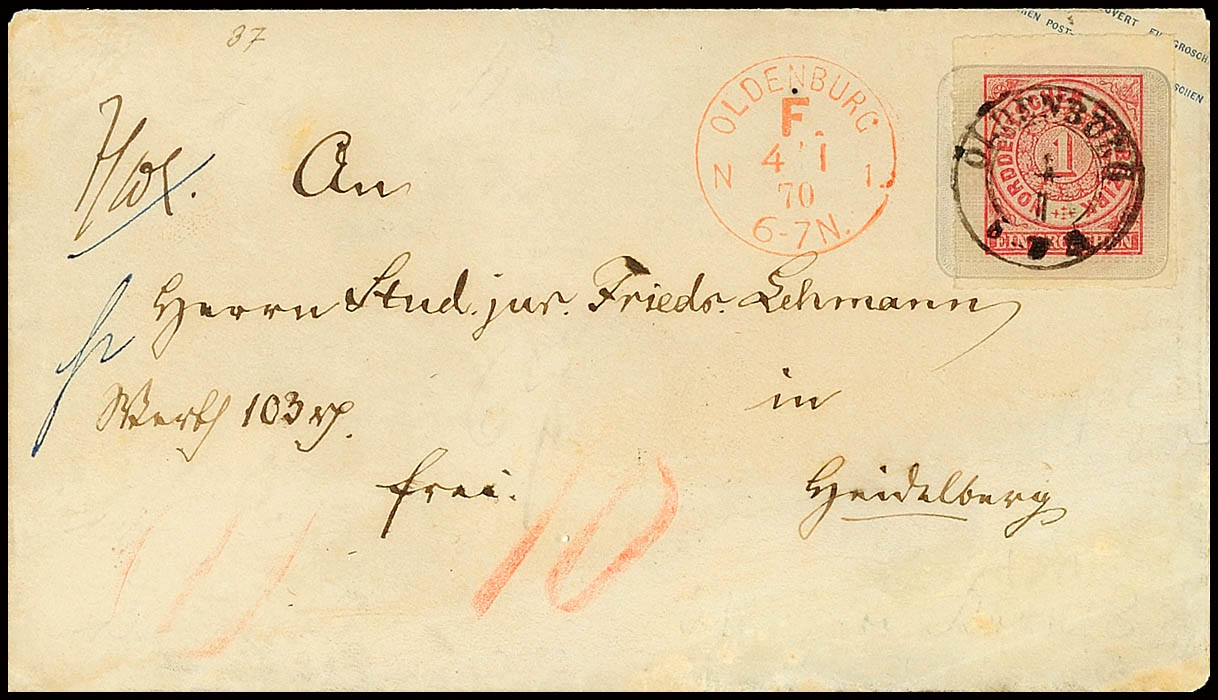 37
OUVERT EIN GROSCHEN
POST-
SCHEN
OLDENBURG
F.
4 1
N 1.
70
6-7N.
OLDENBURG
NORDDEUTSCHER
BEZIRK
1
EIN GROSCHEN
An
Herrn Stud. jur. Friedr. Lehmann
Werth 103
in
frei.
10
Heidelberg